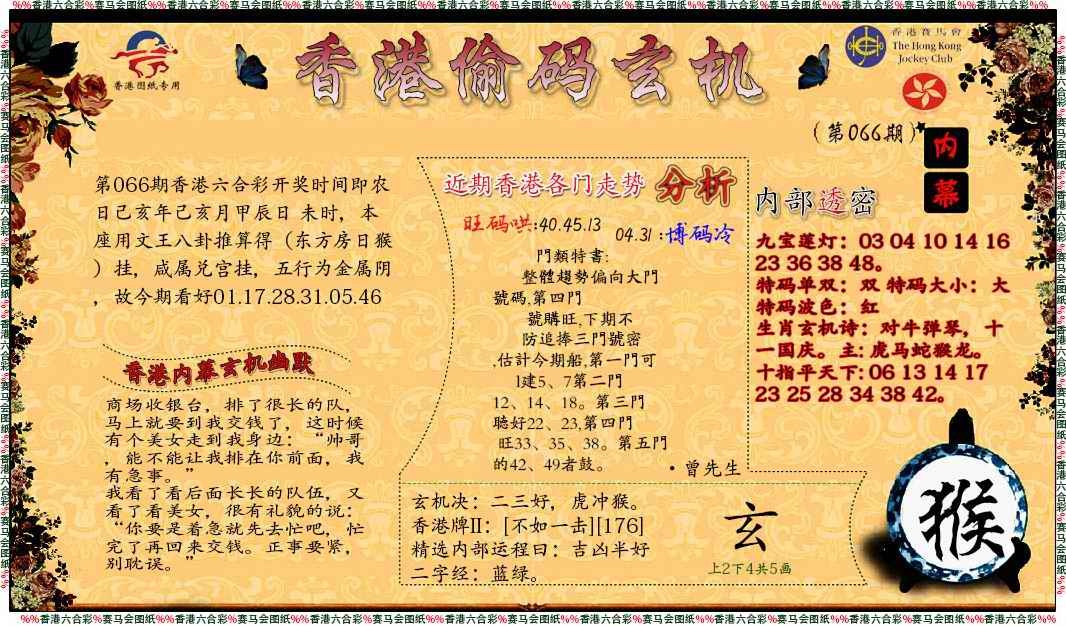 %%香港六合彩%赛马会图纸%%香港六合彩%赛马会图纸%%香港六合彩%赛马会图纸%%香港六合彩%赛马会图纸%%香港六合彩%赛马会图纸%%香港六合彩%赛马会图纸%%香港六合彩%%
香港图纸专用
香港偷码玄机
香港賽馬會
The Hong Kong
Jockey Club
(第066期)
内幕
第066期香港六合彩开奖时间即农
日己亥年己亥月甲辰日 未时，本
座用文王八卦推算得（东方房日猴
）挂，咸属兑宫挂，五行为金属阴
，故今期看好01.17.28.31.05.46
香港内幕玄机幽默
商场收银台，排了很长的队，
马上就要到我交钱了，这时候
有个美女走到我身边：“帅哥
，能不能让我排在你前面，我
有急事。”
我看了看后面长长的队伍，又
看了看美女，很有礼貌的说：
“你要是着急就先去忙吧，忙
完了再回来交钱。正事要紧，
别耽误。”
近期香港各门走势 分析
旺码哄:40.45.13 04.31:博码冷
門類特書:
整體趨勢偏向大門
號碼,第四門
號購旺,下期不
防追捧三門號密
,估計今期船,第一門可
1建5、7第二門
12、14、18。第三門
聽好22、23,第四門
旺33、35、38。第五門
的42、49者鼓。
•曾先生
玄机决：二三好，虎冲猴。
香港牌II：[不如一击][176]
精选内部运程曰：吉凶半好
二字经：蓝绿。
玄
上2下4共5画
内部透密
九宝莲灯：03 04 10 14 16
23 36 38 48。
特码单双：双 特码大小：大
特码波色：红
生肖玄机诗：对牛弹琴，十
一国庆。主: 虎马蛇猴龙。
十指平天下: 06 13 14 17
23 25 28 34 38 42。
猴
%%香港六合彩%赛马会图纸%%香港六合彩%赛马会图纸%%香港六合彩%赛马会图纸%%香港六合彩%赛马会图纸%%香港六合彩%赛马会图纸%%香港六合彩%赛马会图纸%%香港六合彩%%